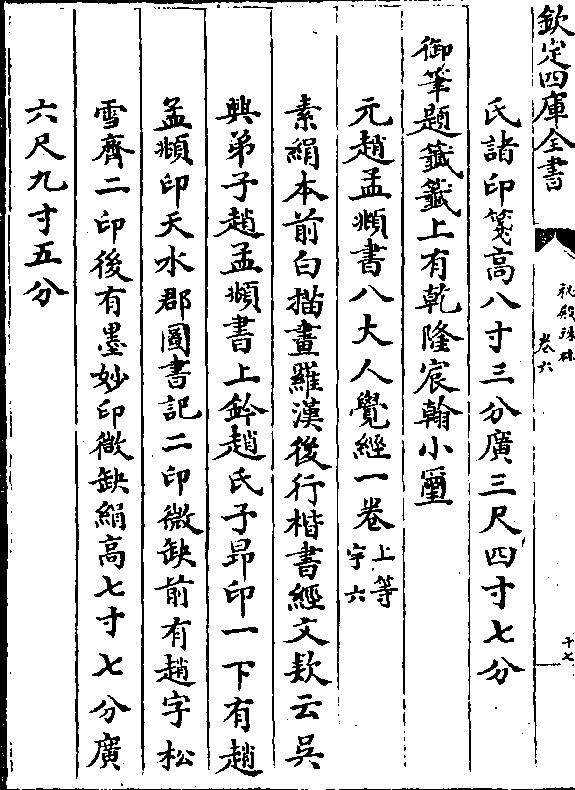 欽定四庫全書
秘殿珠林
卷六
十七
氏諸印箋高八寸三分廣三尺四寸七分
御筆題籤籤上有乾隆宸翰小璽
元趙孟頫書八大人覺經一卷上等
宇六
素絹本前白描畫羅漢後行楷書經文款云吳
興弟子趙孟頫書上鈐趙氏子昂印一下有趙
孟頫印天水郡圖書記二印微缺前有趙字松
雪齋二印後有墨妙印微缺絹高七寸七分廣
六尺九寸五分